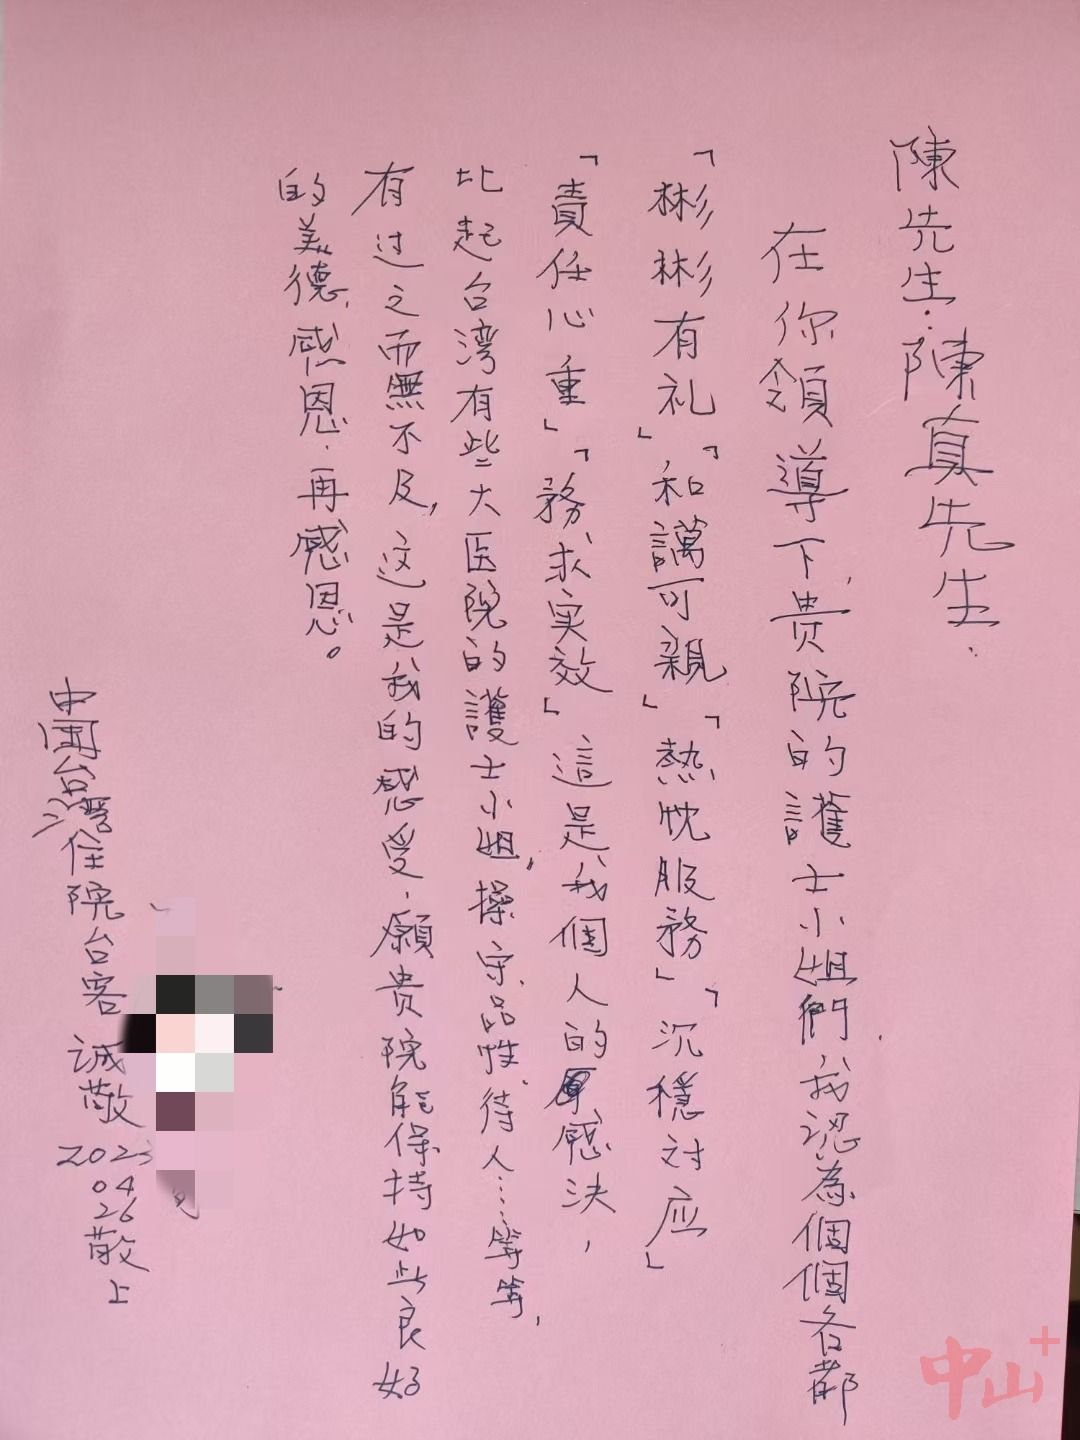 陳先生:陳真先生:
在你領導下,貴院的護士小姐們,我認為個個各都
「彬彬有礼」,「和藹可親」「熱忱服務」「沉穩対应」
「責任心重」「務求実效」這是我個人的感決,
比起台湾有些大医院的護士小姐,操守、品性、待人……等等,
有过之而無不及,这是我的感受,願貴院能保持如此良好
的美德,感恩.再感恩。
中國台灣住院台客
誠敬
2023
04
26
敬上
中山+